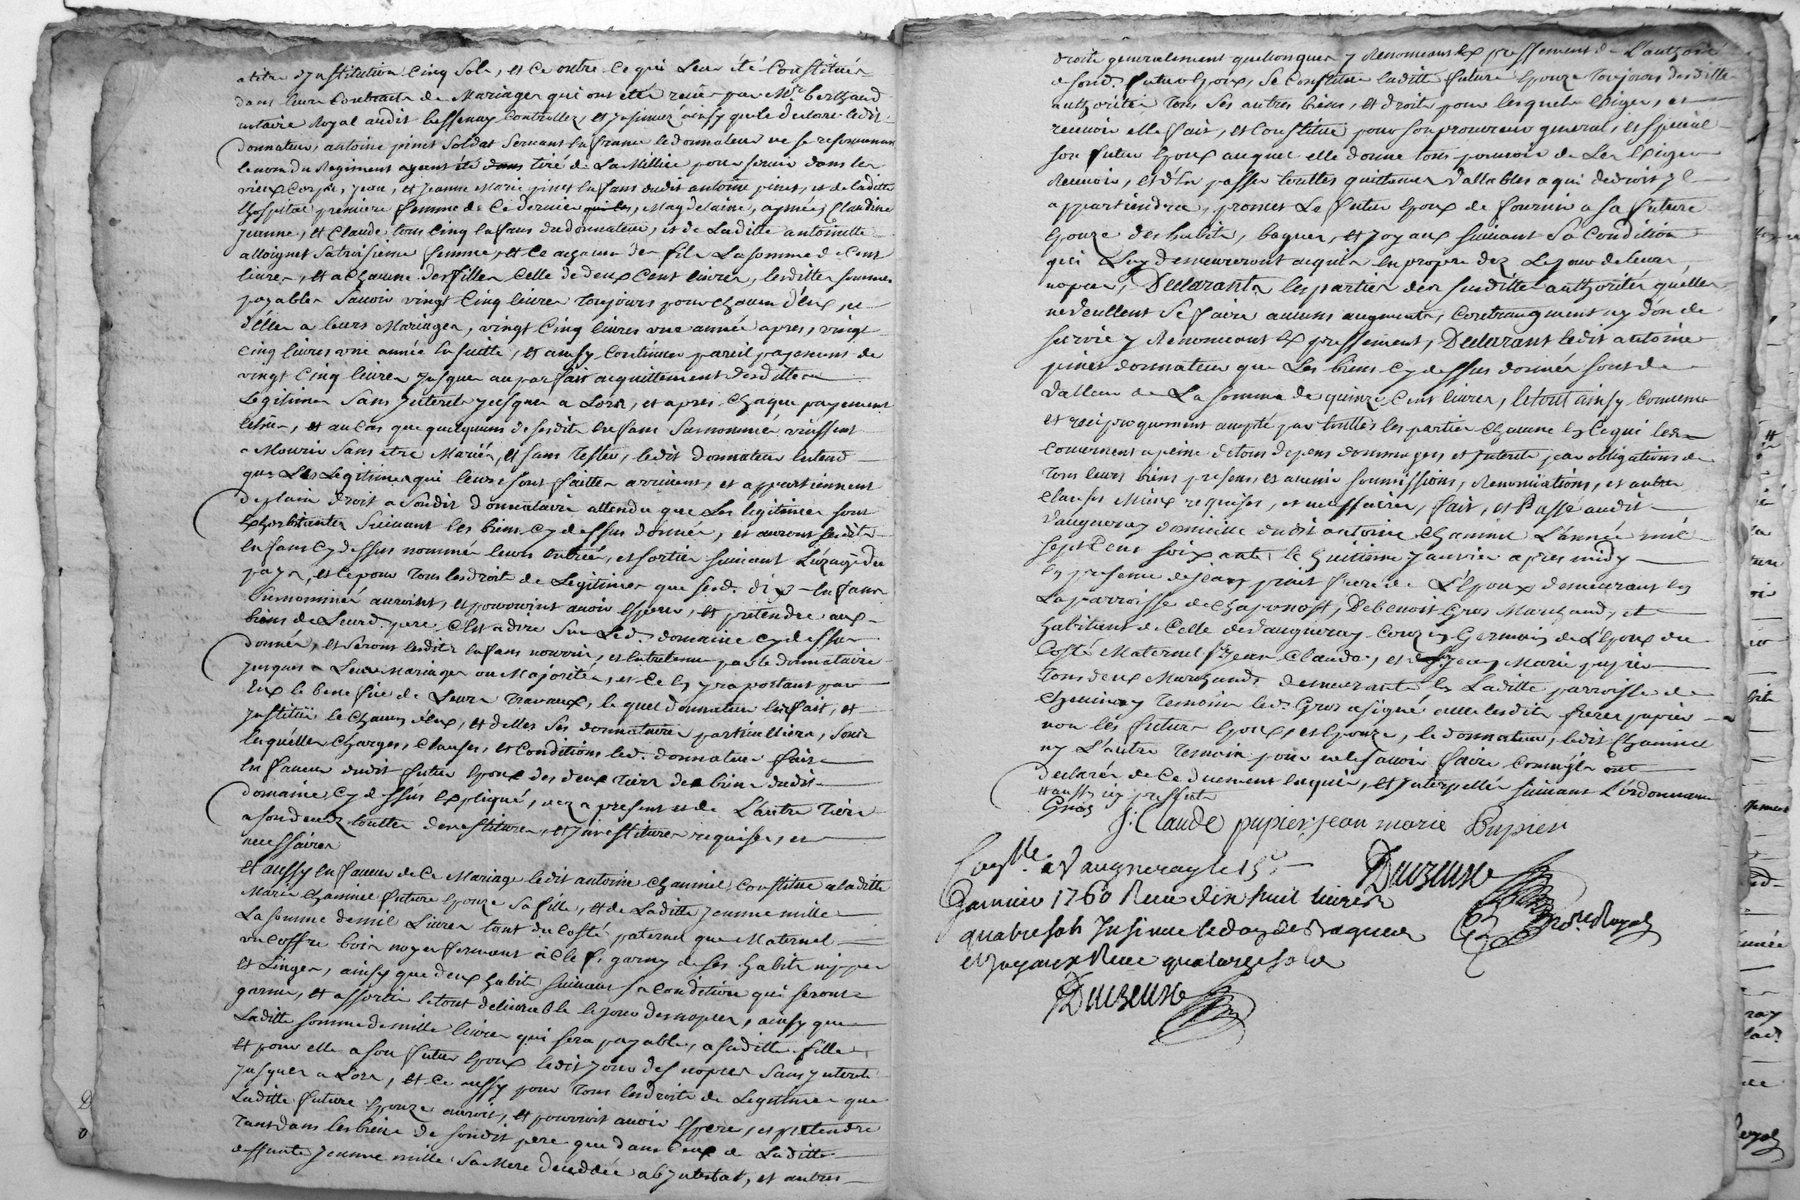 a titre d'institution Cinq Sols, et ce outre ce qui Leur été Constitués
dans leurs Contracts de Mariages qui ont été recus par Me berthaud
notaire Royal audit bessenay Controllés, et insinués ainsy que le declare ledit
donnateur, antoine pinet Soldat Servant la france le donnateur ne se resouvenant
le nom du Regiment ayant été dans tiré de La Millice pour servir dans les
vieux Corps, jean, et jeanne Marie pinet Enfans dudit antoine pinet, et de laditte
premiere femme de Ce dernier, Magdelaine, agnés, Claudine
jeanne, et Claude tous cinq Enfans du donnateur, et de Laditte antoinette
satroisieme femme, et Ce a chacun des fils La somme de Cent
livres, et a Chacune des filles Celle de deux Cent livres, lesdittes sommes
payables Savoir vingt Cinq livres Toujours pour chacun d'eux, et
d'elles a leurs Mariages, vingt Cinq livres une année apres, vingt
Cinq livres une année Ensuitte, et ainsy Continuer pareil payement de
vingt Cinq livres jusques au parfait acquittement desdittes
Legitimes Sans jnterets jusques a Lors, et apres Chaque payement
Echus, et au cas que quelquuns de sesdits Enfans Surnommés vinssent
a Mourir Sans etre Mariés, et Sans Tester, ledit donnateur Entend
que Les Legitimes qui leurs sont faittes arrivent, et appartiennent
de plain droit a Sondit donnataire attendu que Les legitimes sont
Exhorbitantes Suivant les biens Cy dessus donnés, et auront lesdits
Enfans Cy dessus nommés leurs Entrées, et sorties suivant L'uzage du
pays, et Ce pour Tous les droits de Legitimes que sesd. dix Enfans
Surnommés auroint, et pourroint avoir Esperer, et pretendre aux
biens de Leurd. pere C'est a dire Sur Led. domaine Cy dessus
donnés, et Seront lesdits Enfans nourris, et Entretenus par le donnataire
jusques a Leurs Mariages ou Majorités, et Ce En y raportant par
Eux le benefice de Leurs Travaux, le quel donnateur Les fait, et
jnstitue le Chacun d'eux, et d'elles Ses donnataires particulliers, sous
lesquelles Charges, Clauses, et Conditions led. donnateur fait
En faveur dudit futur Epoux des deux Tiers des biens dudit
domaine, Cy dessus Expliqués, dez a present et de L'autre Tiers
a son decez touttes devestitures, et jnvestitures requises, et
necessaires
Et aussy En faveur de Ce Mariage ledit antoine Chaminel Constitue a Laditte
Marie Chaminel future Epouze Sa fille, et de Laditte jeanne mille
La somme de mil Livres tant du Costé paternel que Maternel
un coffre bois noyer fermant à Clef, garny de ses habits nippes
et Linges, ainsy que deux habits suivant sa condition qui seront
garnis, et assortis le tout delivrable le jour des nopces, ainsy que
Laditte somme de mille livres qui sera payable, a saditte fille
Et pour elle a son futur Epoux ledit jour des nopces Sans jnterets
jusques a Lors, Et Ce aussy pour Tous les droits de Legitimes que
Laditte future Epouze auroit, et pourroit avoir Esperer, et pretendre
Tant dans les biens de Sondit pere que dans Ceux de Laditte
deffunte jeanne mille Sa Mere decedée ab jntestat, et autres
droits generalement quelconques y Renonceant Expressement de L'authorité
de sond. futur Epoux, Se Constitue laditte future Epouze Toujours desdittes
authorités Tous Ses autres biens, et droits pour lesquels Exiger, et
recevoir elle fait, et Constitue pour Son procureur general, et special
Son futur Epoux auquel elle donne Tous pouvoir de Les Exiger
Recevoir, et d'En passer touttes quittances vallables a qui de droit jl
appartiendra, promet Le futur Epoux de fournir a Sa future
Epouze des habits, bagues, et joyaux suivant Sa Condition
qui Luy demeureront acquis En propre dez Le jour de leurs
nopces, Declarants les parties des susdittes authorités quelles
ne veullent Se faire aucuns augments, Contreaugment ny don de
survie y Renonceant Expressement, Declarant ledit antoine
pinet donnateur que Les biens Cy dessus donnés sont de
Valleur de La somme de quinze Cens livres, le tout ainsy Convenu
et reciproquement accepté par touttes les parties Chacune En Ce qui Les
Concernent a peine de tous depens dommages et jnterets par obligations de
Tous leurs biens presens, et avenir Soumissions, Renonciations, et autres
Clauses Mieux requises, et necessaires, fait, et Passé audit
Vaugneray domicille dudit antoine Chaminel L'année mil
Sept Cens soixante le huitieme janvier apres midy
En presence de jean pinet frere de L'Epoux demeurant En
La parroisse de Chaponost, De benoit Gros Marchand, et
habitant de Celle de Vaugneray Couzin Germain de L'Epoux du
Costé Maternel Srs jean Claude, et jean Marie pupier
Tous deux Marchands demeurants En Laditte parroisse de
Temoins led. Gros a signé avec lesdits freres pupier
non les futurs Epoux, et Epouze, le donnateur, ledit Chaminel
ny L'autre Temoin pour ne Sçavoir faire Comm'ils ont
declarés de Ce duement Enquis, et jnterpellés suivant L'ordonnance
Gros
J. Claude pupier jean marie Pupier
Conlle. à Vaugneray le 15e
Janvier 1760 Receu dix huit livres
quatre sols Insinué le don des Bagues
et joyaux Receu quatorze sols
Duizeux
not. Royal
Duizeux